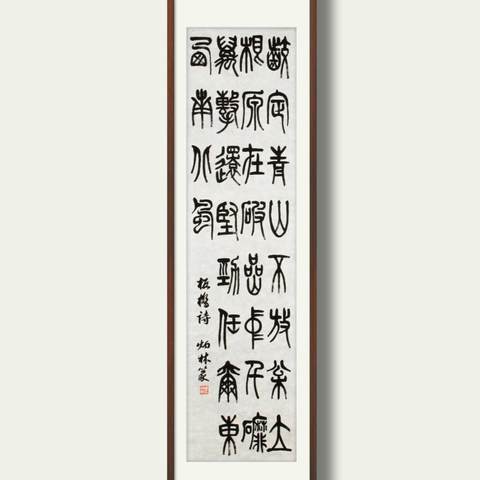 齩定青山不放松立
根原在破嵒中千磨
萬擊還堅勁任爾東
西南北風
板橋詩 林篆